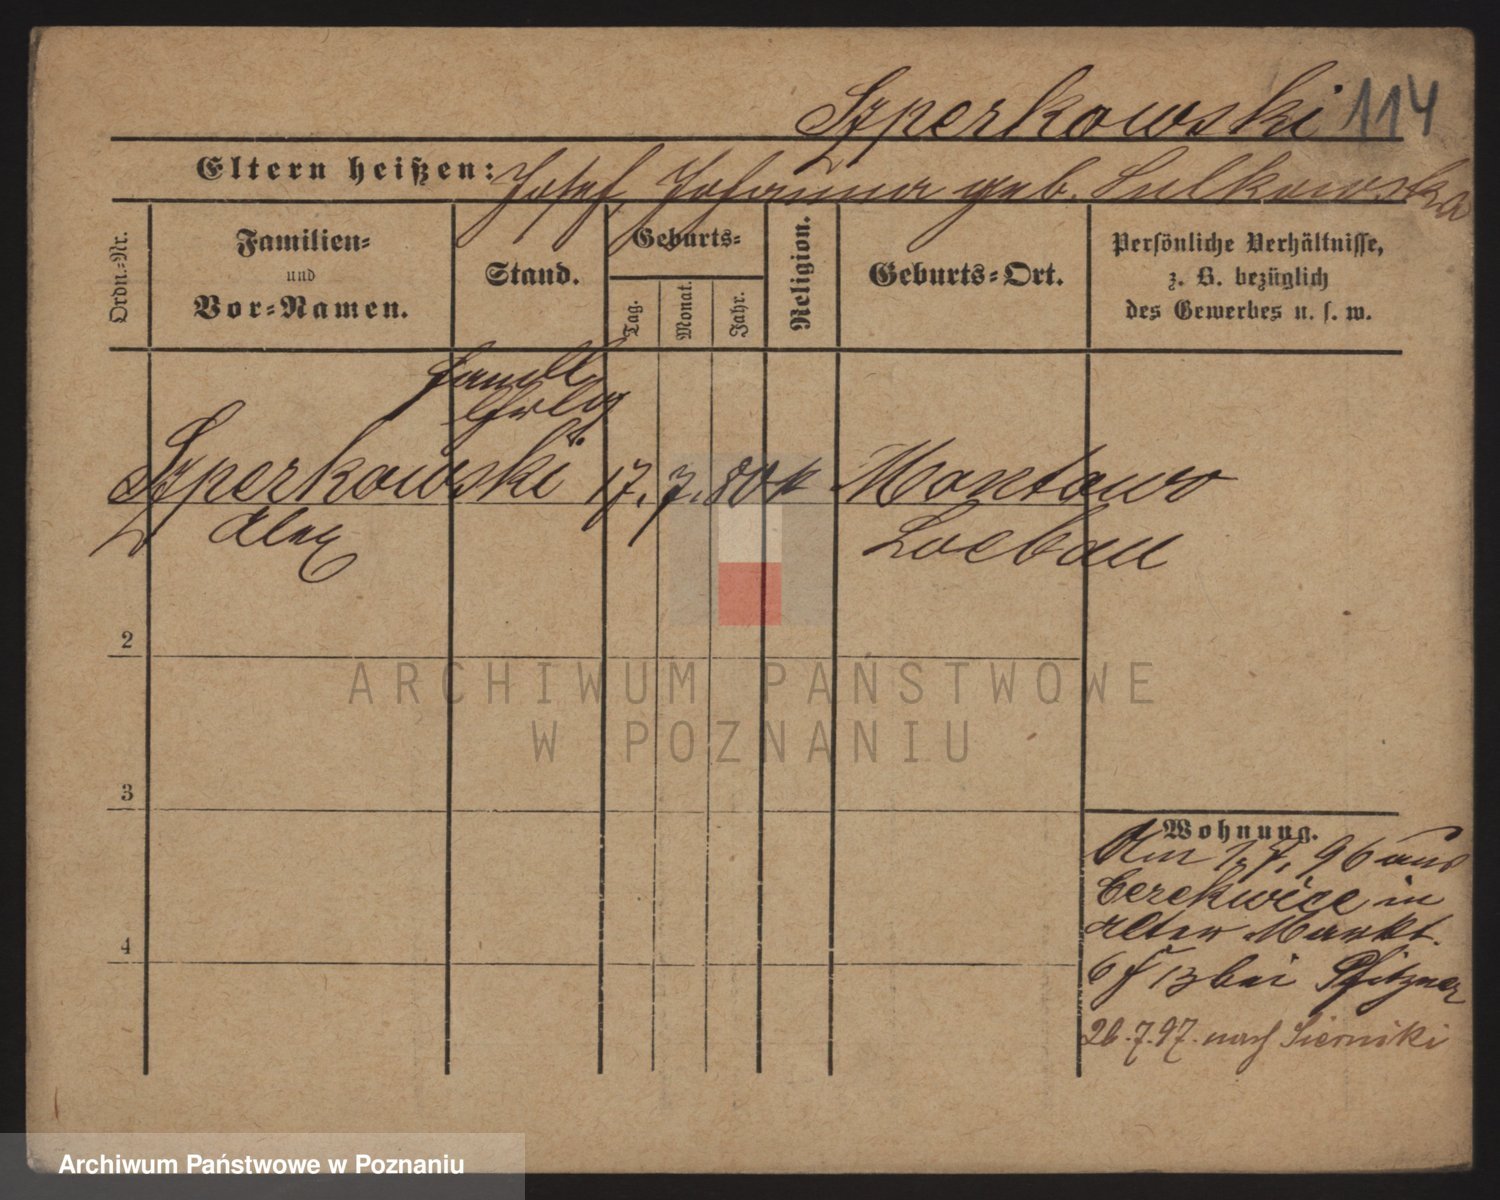 Szperkowski 114
Eltern heißen: Josef, Johanna geb. Sulkowska
Ordn.-Nr.
Familien-
und
Vor-Namen.
Stand.
Geburts-
Tag.
Monat.
Jahr.
Religion.
Geburts-Ort.
Persönliche Verhältnisse,
z. B. bezüglich
des Gewerbes u. s. w.
Szperkowski 17. 7. 80 k Montowo
Alex Loebau
2
3
4
Wohnung.
Am 1. 7. 96 aus
Cerekwice in
Alter Markt.
6 bei Pfitzner
26. 7. 97. nach Sierniki
ARCHIWUM PAŃSTWOWE
W POZNANIU
Archiwum Państwowe w Poznaniu